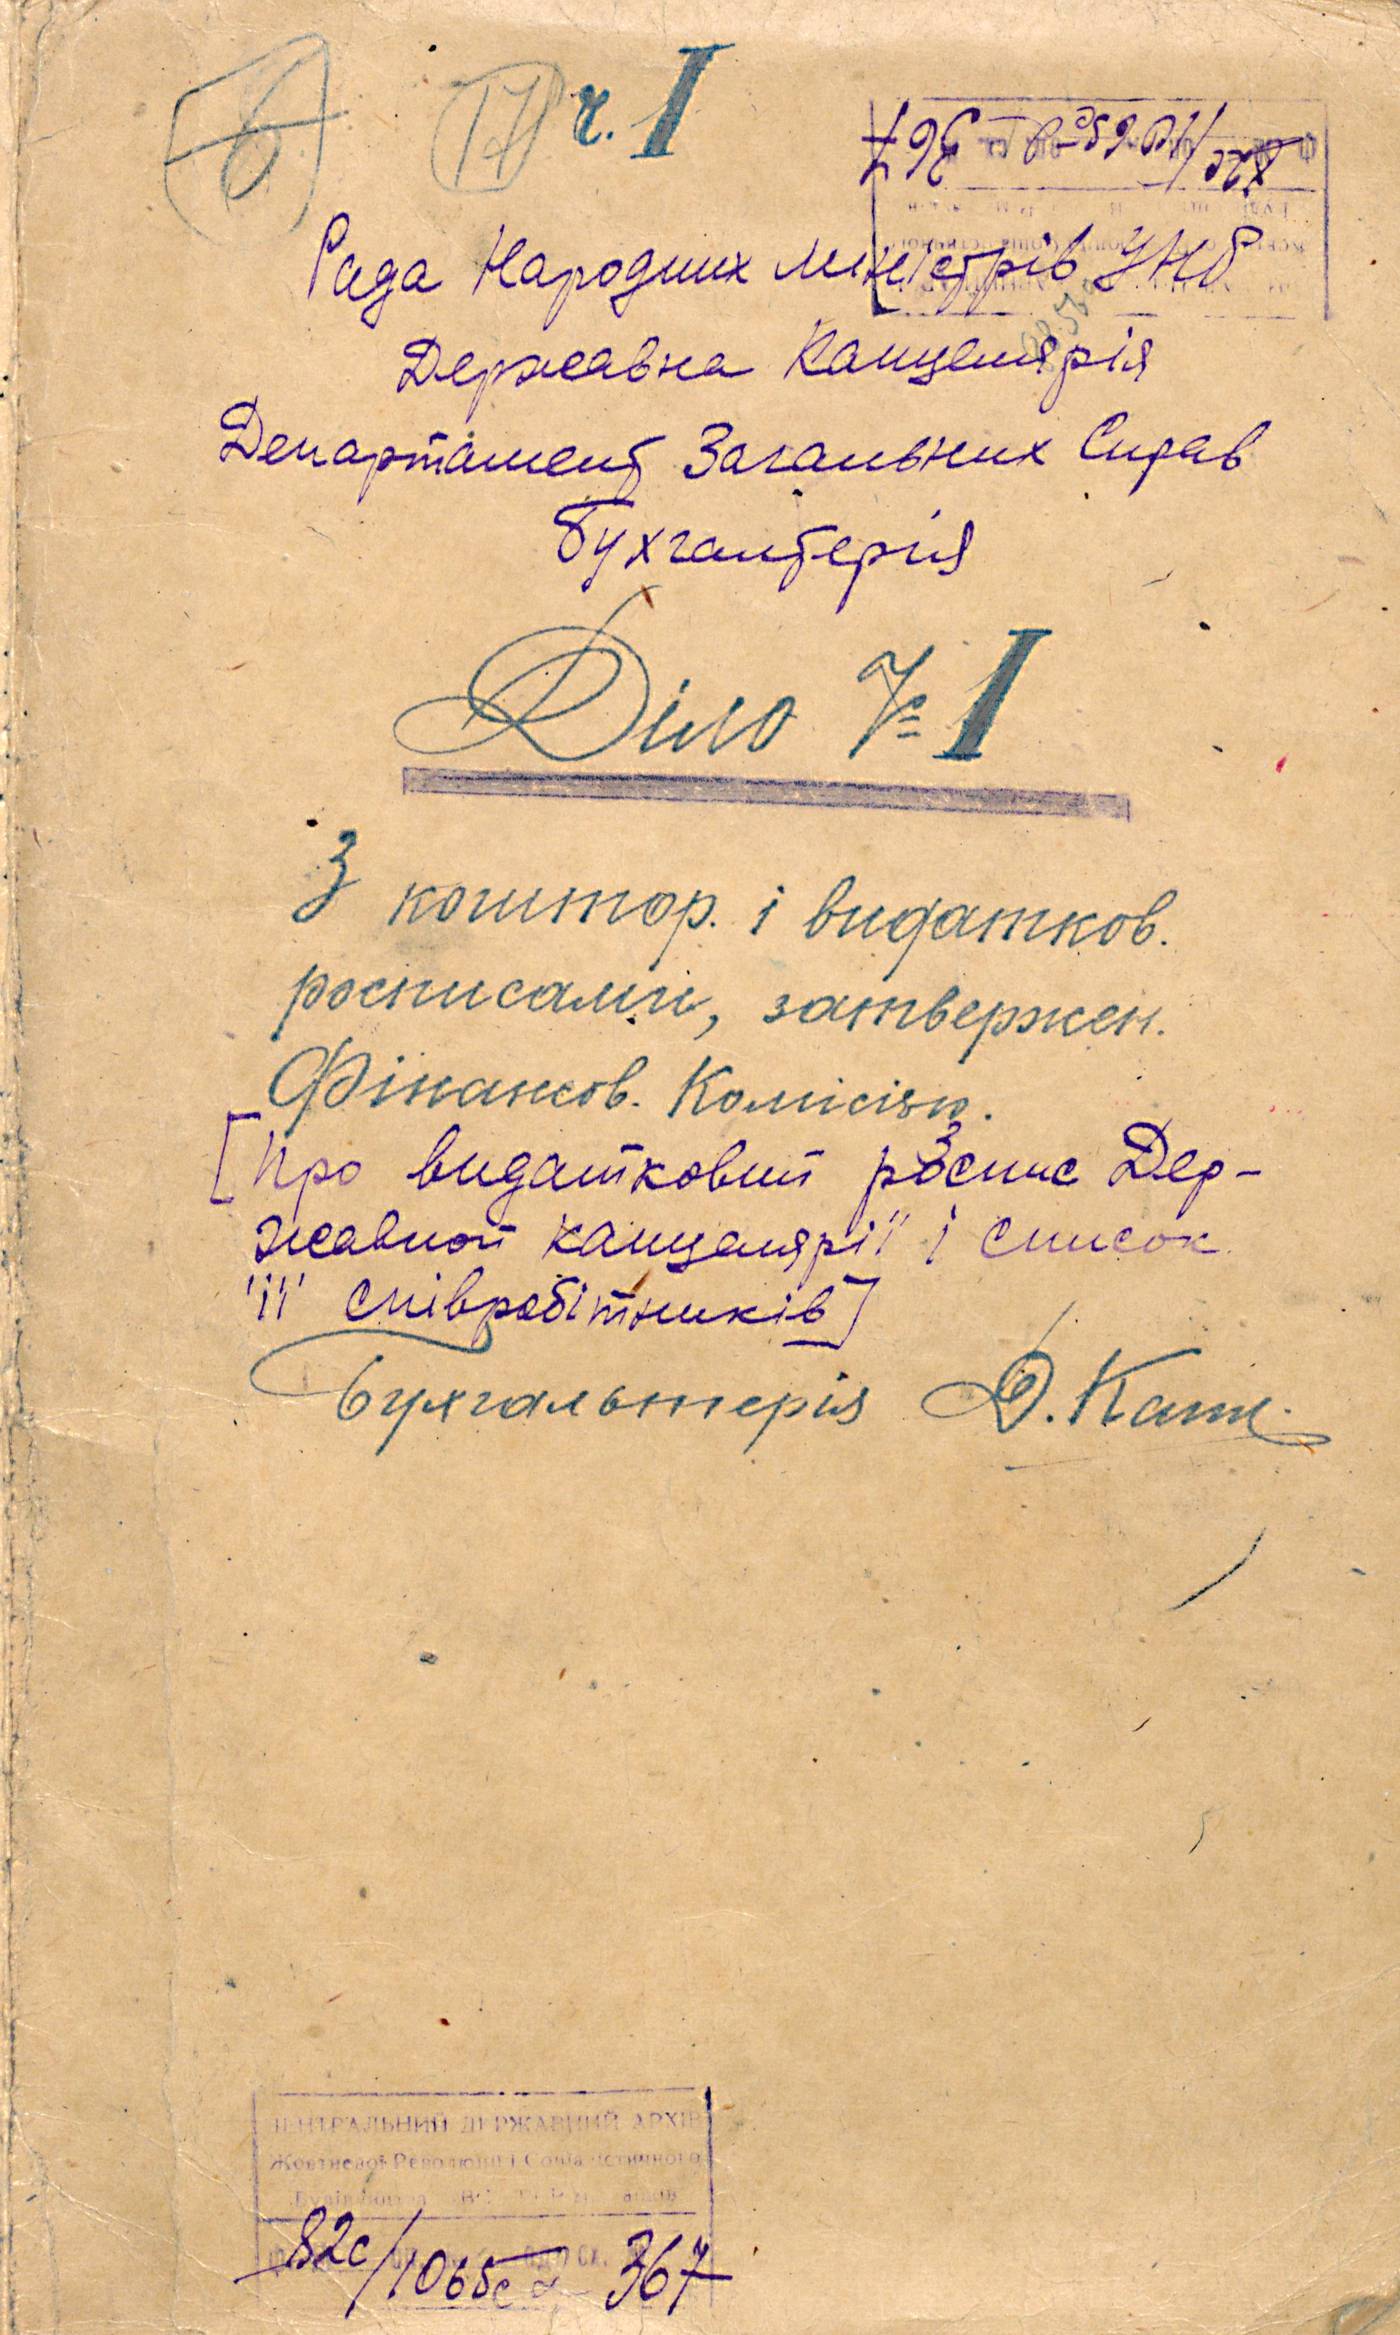 6
17 ч. I
Рада Народних Міністрів УНР
Державна Канцелярія
Департамент Загальних Справ
Бухгалтерія
Діло № 1
З коштор. і видатков.
росписами, затвержен.
Фінансов. Комісією.
[Про видатковий розпис Дер-
жавной канцелярії і список
її співробітників]
Бухгальтерія
ЦЕНТРАЛЬНИЙ ДЕРЖАВНИЙ АРХІВ
Жовтневої Революції і Соціалістичного
82с/1065с 367